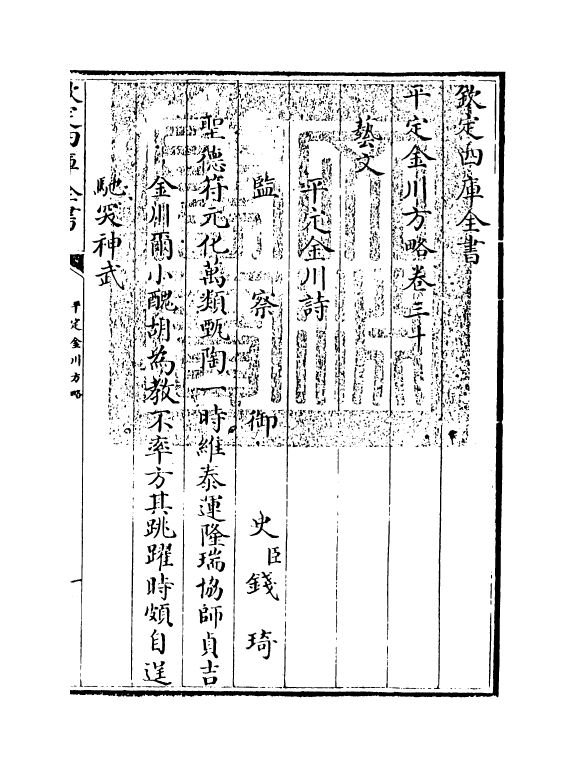 欽定四庫全書
平定金川方略卷三十
藝文
平定金川詩
監察御史臣錢琦
聖德符元化萬類甄陶一時維泰運隆瑞協師貞吉
金川爾小醜胡為教不率方其跳躍時頗自逞
馳突神武
欽定四庫全書
平定金川方略
一